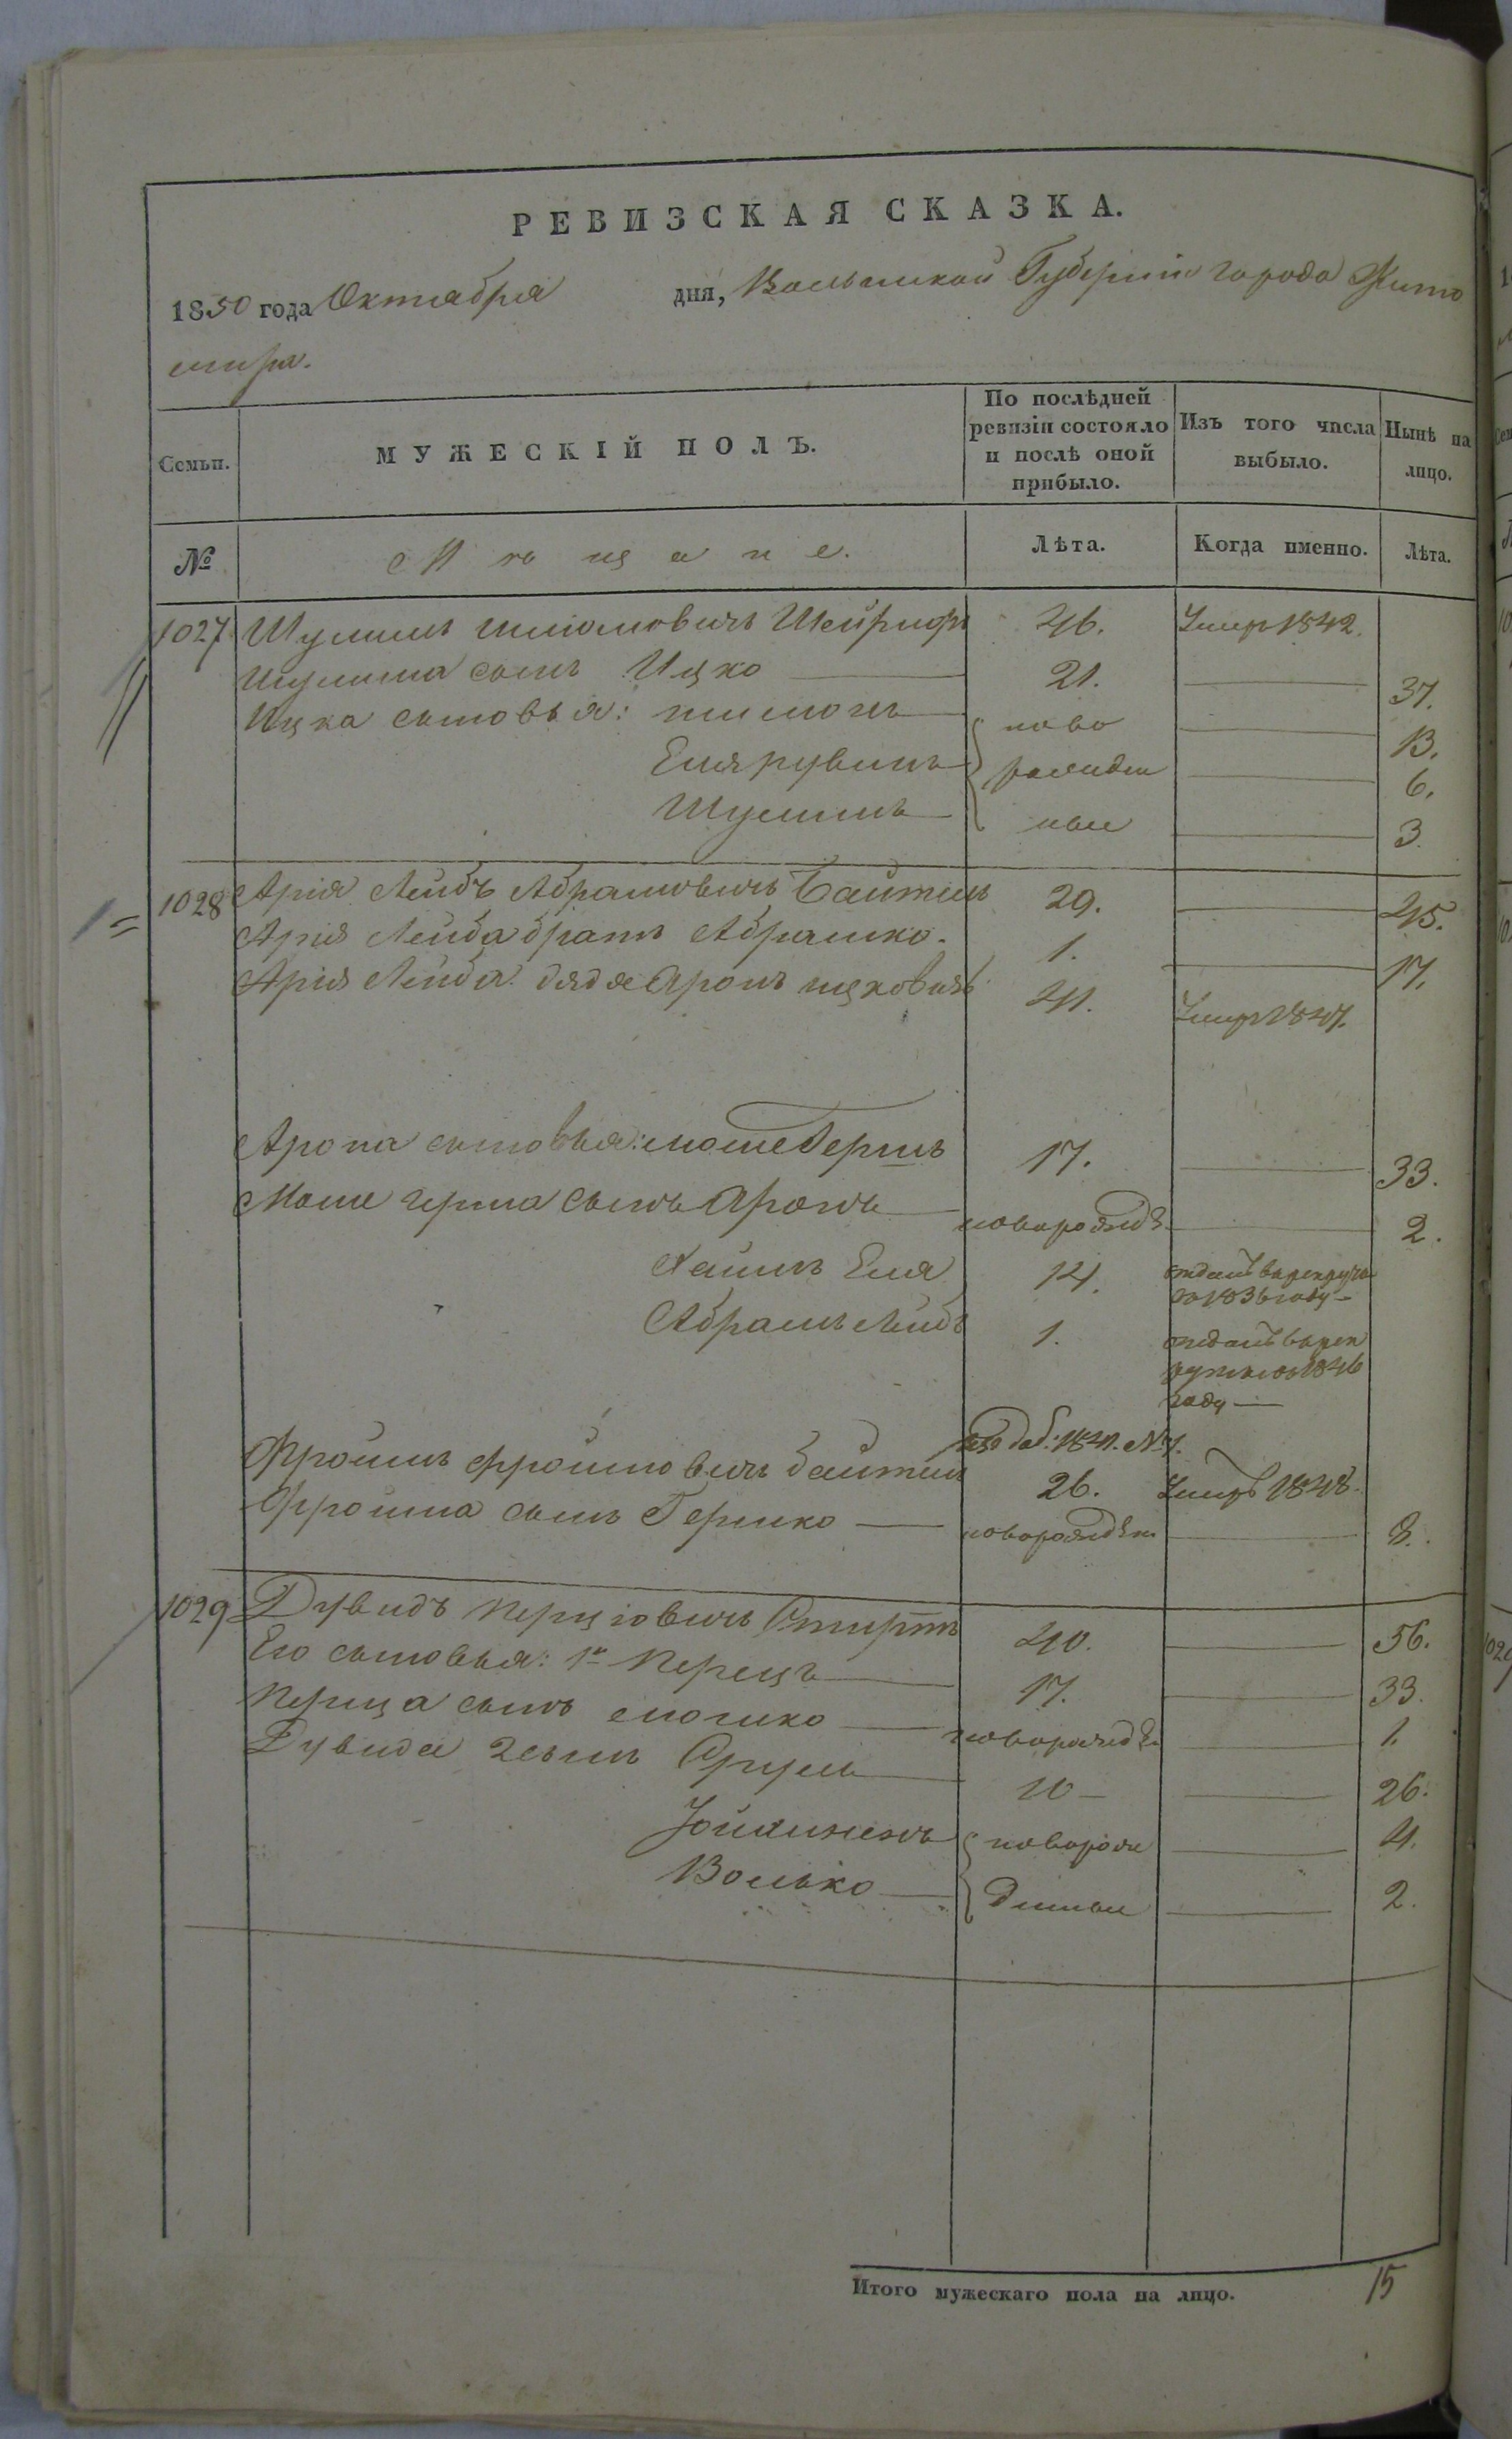 РЕВИЗСКАЯ СКАЗКА.
1850 года Октября дня, Волынской Губерніи города Жито
мира.
Семьи. МУЖЕСКІЙ ПОЛЪ. По послѣдней ревизіи состояло и послѣ оной прибыло. Изъ того числа выбыло. Нынѣ на лицо.
№ Мѣщане. Лѣта. Когда именно. Лѣта.
1027 Шулимъ Шліомовичъ 46. Умеръ 1842.
Шулима сынъ Ицко 21. 37.
Ицка сыновья: Шліома ново 13.
Еля рувинъ рожден 6.
Шулимъ ные 3.
1028 Арія Лейбъ Абрамовичъ Байтель 29. 45.
Арія Лейба братъ Абрамко. 1. 17.
Арія Лейба дядя Аронъ ицковичъ 41. Умеръ 1847.
Арона сыновья: мошегершъ 17. 33.
Моше герша сынъ Аронъ новорожде. 2.
Хаимъ Еля 14. отданъ в рекруты
во 1836 году
Абрамъ Лейбъ 1. отданъ в рек
руты во 1846
году
по доб: 1841. № 7.
Фроимъ фроимовичъ байтель 26. Умеръ 1848.
Фроима сынъ Гершко новорожден 8.
1029 Дувидъ перціовичъ 40. 56.
Его сыновья: 1й Перецъ 17. 33.
Перца сынъ мошко новорожде. 1.
Дувида 2 сынъ Сруль 10 26.
новорож 4.
Волько денные 2.
Итого мужескаго пола на лицо. 15